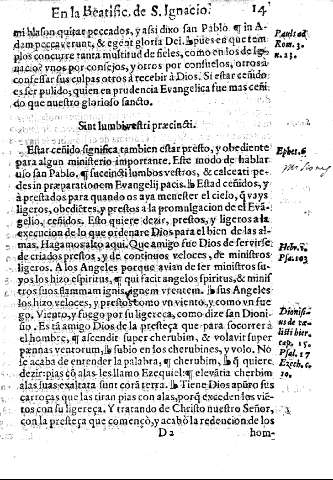 En la Beatific. de S. Ignacio. 14
mi blason quitar pecados, y assi dixo san Pablo. ¶ in A-
dam peccaverunt, & egent gloria Dei. pues en que tem
plos concurre tanta multitud de fieles, como en los de Ig-
nacio? vnos por consejos, y otros por consuelos, otros a
confessar sus culpas otros a recebir à Dios. Si estar ceñido
es ser pulido, quien en prudencia Evangelica fue mas ceñi
do que nuestro glorioso sancto.
Paul. ad
Rom. 3.
n. 23.
Sint lumbi vestri præcincti.
Estar ceñido significa tambien estar presto, y obediente
para algun ministerio importante. Este modo de hablar
uso san Pablo. ¶ succincti lumbos vestros, & calceati pe-
des in præparationem Evangelij pacis. Estad ceñidos, y
à prestados para quando os aya menester el cielo, q̃ vays
ligeros, obediẽtes, y prestos a la promulgacion de el Eva-
gelio, ceñidos. Esto quiere dezir, prestos, y ligeros a la
execucion de lo que ordenare Dios para el bien de las al-
mas. Hagamos alto aqui. Que amigo fue Dios de servirse
de criados prestos, y de continuos veloces, de ministros
ligeros. A los Angeles porque avian de ser ministros su-
yos los hizo espiritus, ¶ qui facit angelos spiritus, & minis
tros suos flammam ignis, ignem vrentem. sus Angeles
los hizo veloces, y prestos como vn viento, y como vn fue
go. Viento, y fuego por su ligereça, como dize san Dioni-
sio. Es tã amigo Dios de la presteça que para socorrer à
el hombre, ¶ ascendit super cherubim, & volavit super
pennas ventorum, subio en los cherubines, y volo. No
se acaba de entender la palabra, ¶ cherubim, q̃ quiere
dezir: pias cõ alas les llamo Ezequiel: ¶ elevãtia cherbim
alas suas exaltata sunt corã terra. Tiene Dios apuro sus
carroças que las tiran pias con alas, porq̃ exceden los viẽ-
tos con su ligereça. Y tratando de Christo nuestro Señor,
con la presteça que començò, y acabò la redencion de los
Ephes. 6
Hebr. 1.
Psa. 103
Dionisi-
us de cæ-
lesti hier.
cap. 15.
Psal. 17
Ezech. c.
10.
D 2 hom-